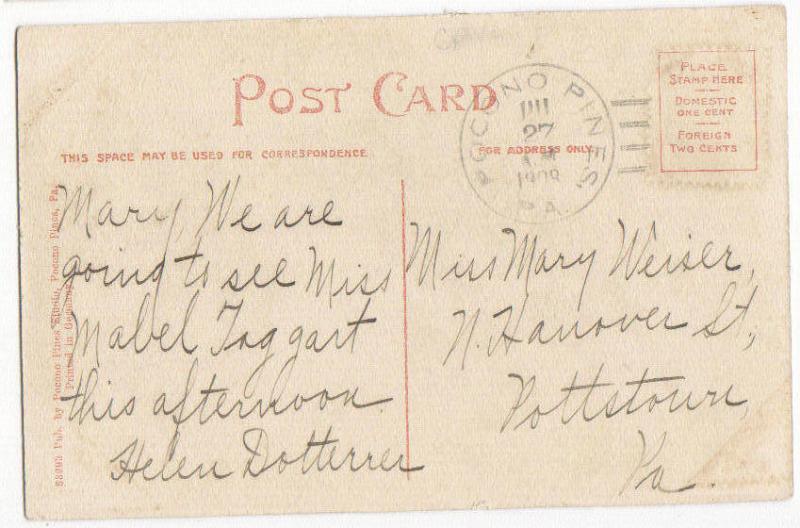 POST CARD
THIS SPACE MAY BE USED FOR CORRESPONDENCE
FOR ADDRESS ONLY.
PLACE
STAMP HERE
DOMESTIC
ONE CENT
FOREIGN
TWO CENTS
POCONO PINES
27
PA.
Mary We are
going to see Miss
Mabel Taggart
this afternoon.
Helen Dotterrer
Miss Mary Weiser,
N. Hanover St.,
Pottstown,
Pa.
Pub. by Pocono Pines Studio, Pocono Pines, Pa.
Printed in Germany